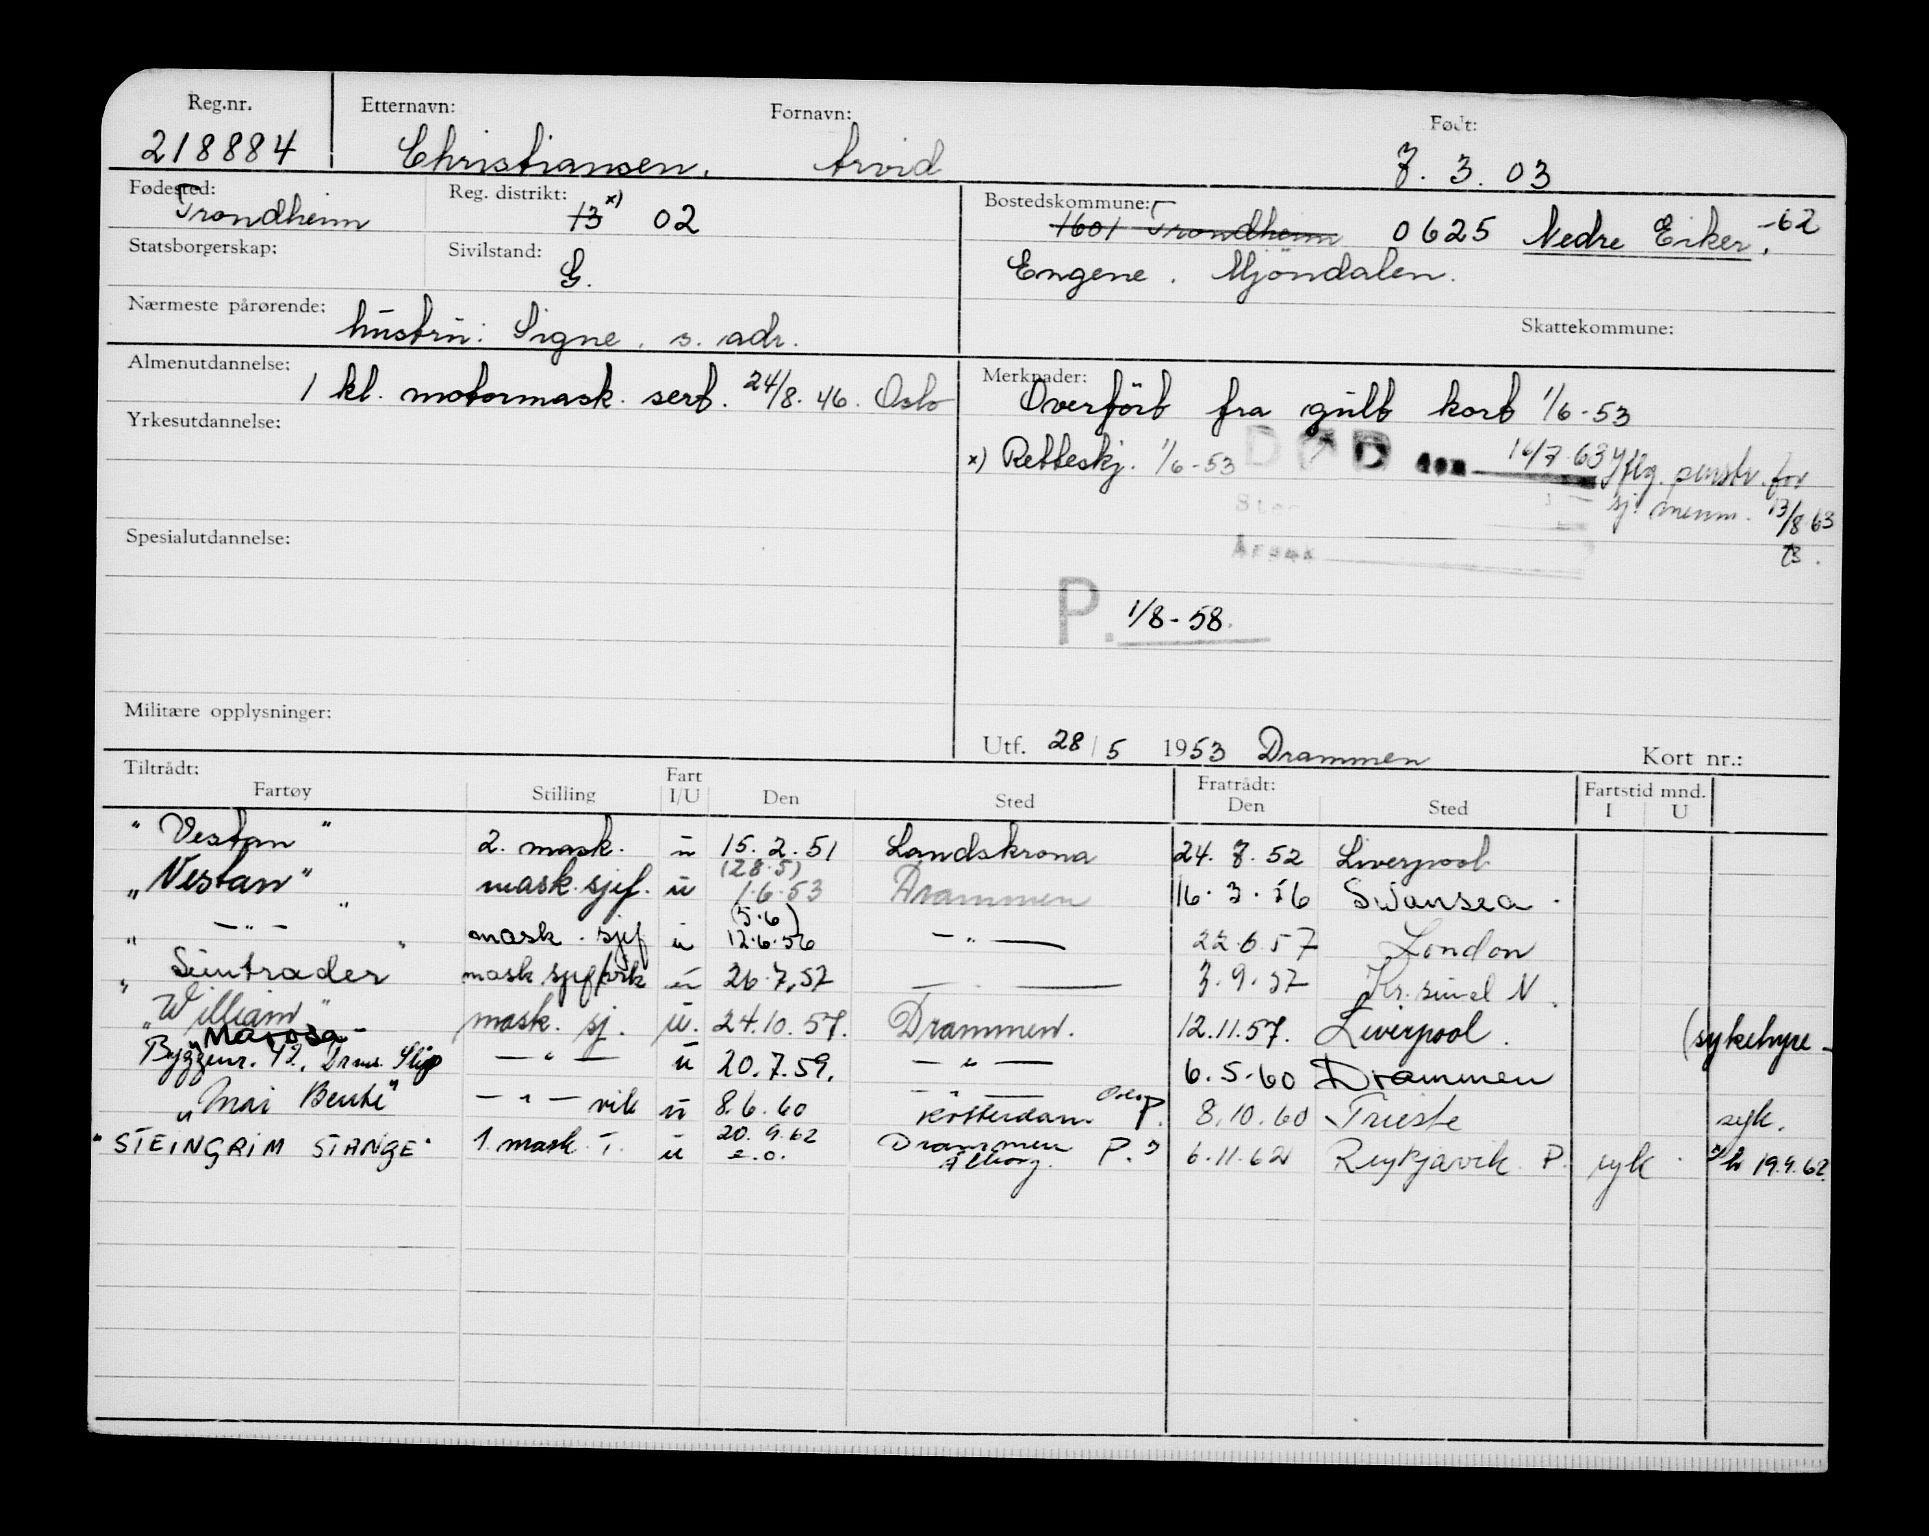 Reg.nr. Etternavn: Fornavn: Født:
218884 Christiansen, Arvid 7. 3. 03
Fødested: Reg. distrikt: Bostedskommune:
Trondheim 13 x) 02 1601 Trondheim 0625 Nedre Eiker, -62
Statsborgerskap: Sivilstand:
G. Engene. Mjöndalen.
Nærmeste pårørende: Skattekommune:
hustru: Signe, s. adr.
Almenutdannelse: Merknader:
1 kl. motormask. sert. 24/8. 46. Oslo Overfört fra gult kort 1/6-53
Yrkesutdannelse:
x) Retteskj. 1/6-53 DØD den 16/7-63 iflg. penstr. for
Sted sj. menn. 13/8 63
Spesialutdannelse: Årsak
P. 1/8-58.
Militære opplysninger:
Utf. 28/5 1953 Drammen Kort nr.:
Tiltrådt: Fart Fratrådt: Fartstid mnd.
Fartøy Stilling I/U Den Sted Den Sted I U
"Vestan" 2. mask. u 15. 2. 51 Landskrona 24. 7. 52 Liverpool
"Vestan" mask. sjef. u (28.5) 1.6.53 Drammen 16. 3. 56 Swansea.
" —"— " mask. sjef u (5.6) 12.6.56 —"— 22.6.57 London
"Suntrader" mask sjef vik u 26.7.57 — 3.9.57 Kr. sund N.
"William" mask. sj. u. 24.10.57. Drammen. 12.11.57. Liverpool. (sykehyre -
"Marosa"
Byggenr. 42, Drms. Slip —"— u 20.7.59. —"— 6.5.60 Drammen
"Mai Bente" —"— vik u 8.6.60 —"— Rotterdam Oslo P. 8.10.60 Trieste syk.
"STEINGRIM STANGE" 1. mask. T. u 20.9.62 e.o. Drammen Ålborg. P. 6.11.62 Reykjavik P. syk. 19.9.62.